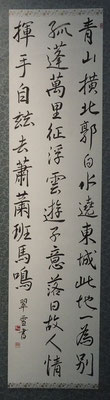 青山橫北郭白水遶東城此地一為別
孤蓬萬里征浮雲遊子意落日故人情
揮手自茲去蕭蕭班馬鳴
翠雪書